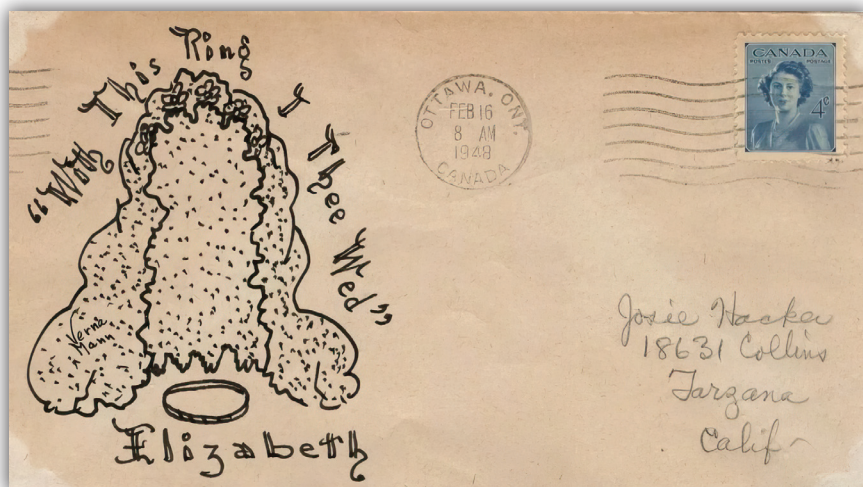 "With This Ring I Thee Wed"
Verna
Mann
Elizabeth
OTTAWA, ONT.
FEB 16
8 AM
1948
CANADA
CANADA
POSTES POSTAGE
4¢
Josie Hacker
18631 Collins
Tarzana
Calif